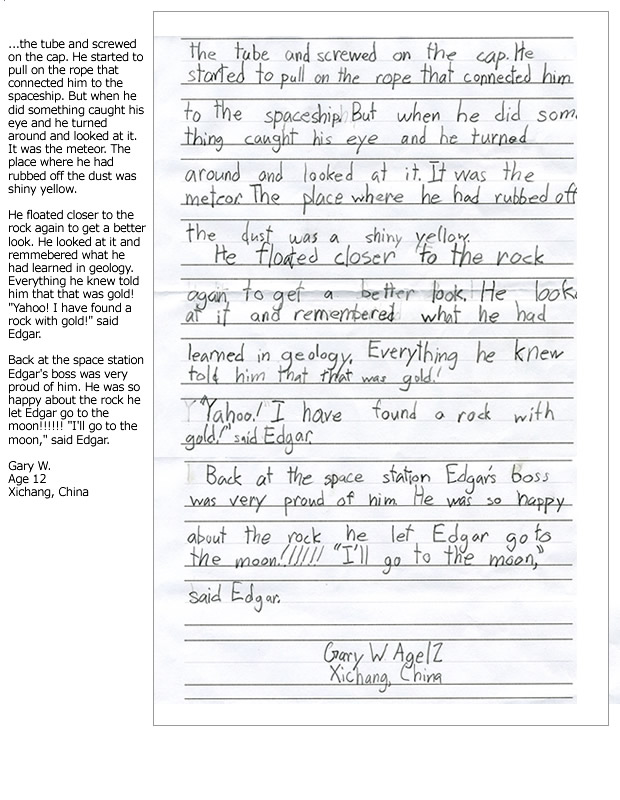 ...the tube and screwed
on the cap. He started to
pull on the rope that
connected him to the
spaceship. But when he
did something caught his
eye and he turned
around and looked at it.
It was the meteor. The
place where he had
rubbed off the dust was
shiny yellow.
He floated closer to the
rock again to get a better
look. He looked at it and
remmebered what he
had learned in geology.
Everything he knew told
him that that was gold!
"Yahoo! I have found a
rock with gold!" said
Edgar.
Back at the space station
Edgar's boss was very
proud of him. He was so
happy about the rock he
let Edgar go to the
moon!!!!!! "I'll go to the
moon," said Edgar.
Gary W.
Age 12
Xichang, China
the tube and screwed on the cap. He
started to pull on the rope that connected him
to the spaceship. But when he did som
thing caught his eye and he turned
around and looked at it. It was the
meteor The place where he had rubbed off
the dust was a shiny yellow.
He floated closer to the rock
again, to get a better look. He look
at it and remembered what he had
learned in geology. Everything he knew
told him that that was gold!
"Yahoo! I have found a rock with
gold!" said Edgar
Back at the space station Edgar's boss
was very proud of him. He was so happy
about the rock he let Edgar go to
the moon!!!!!! "I'll go to the moon,"
said Edgar.
Gary W Age 12
Xichang, China